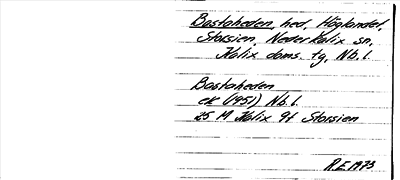 Bastaheden, hed, Höglandet,
Storsien, Nederkalix sn,
Kalix doms. tg, Nb. l.
Bastaheden
ek (1951) Nb. l.
25 M Kalix 9f Storsien
R.E. 1973